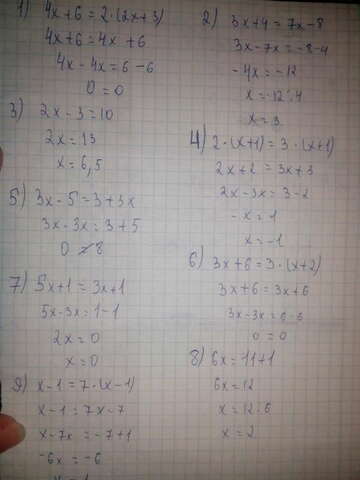 1) 4x+6=2·(2x+3)
4x+6=4x+6
4x-4x=6-6
0=0
2) 3x+4=7x-8
3x-7x=-8-4
-4x=-12
x=-12:4
x=3
3) 2x-3=10
2x=13
x=6,5
4) 2·(x+1)=3·(x+1)
2x+2=3x+3
2x-3x=3-2
-x=1
x=-1
5) 3x-5=3+3x
3x-3x=3+5
0≠8
6) 3x+6=3·(x+2)
3x+6=3x+6
3x-3x=6-6
0=0
7) 5x+1=3x+1
5x-3x=1-1
2x=0
x=0
8) 6x=11+1
6x=12
x=12:6
x=2
9) x-1=7·(x-1)
x-1=7x-7
x-7x=-7+1
-6x=-6